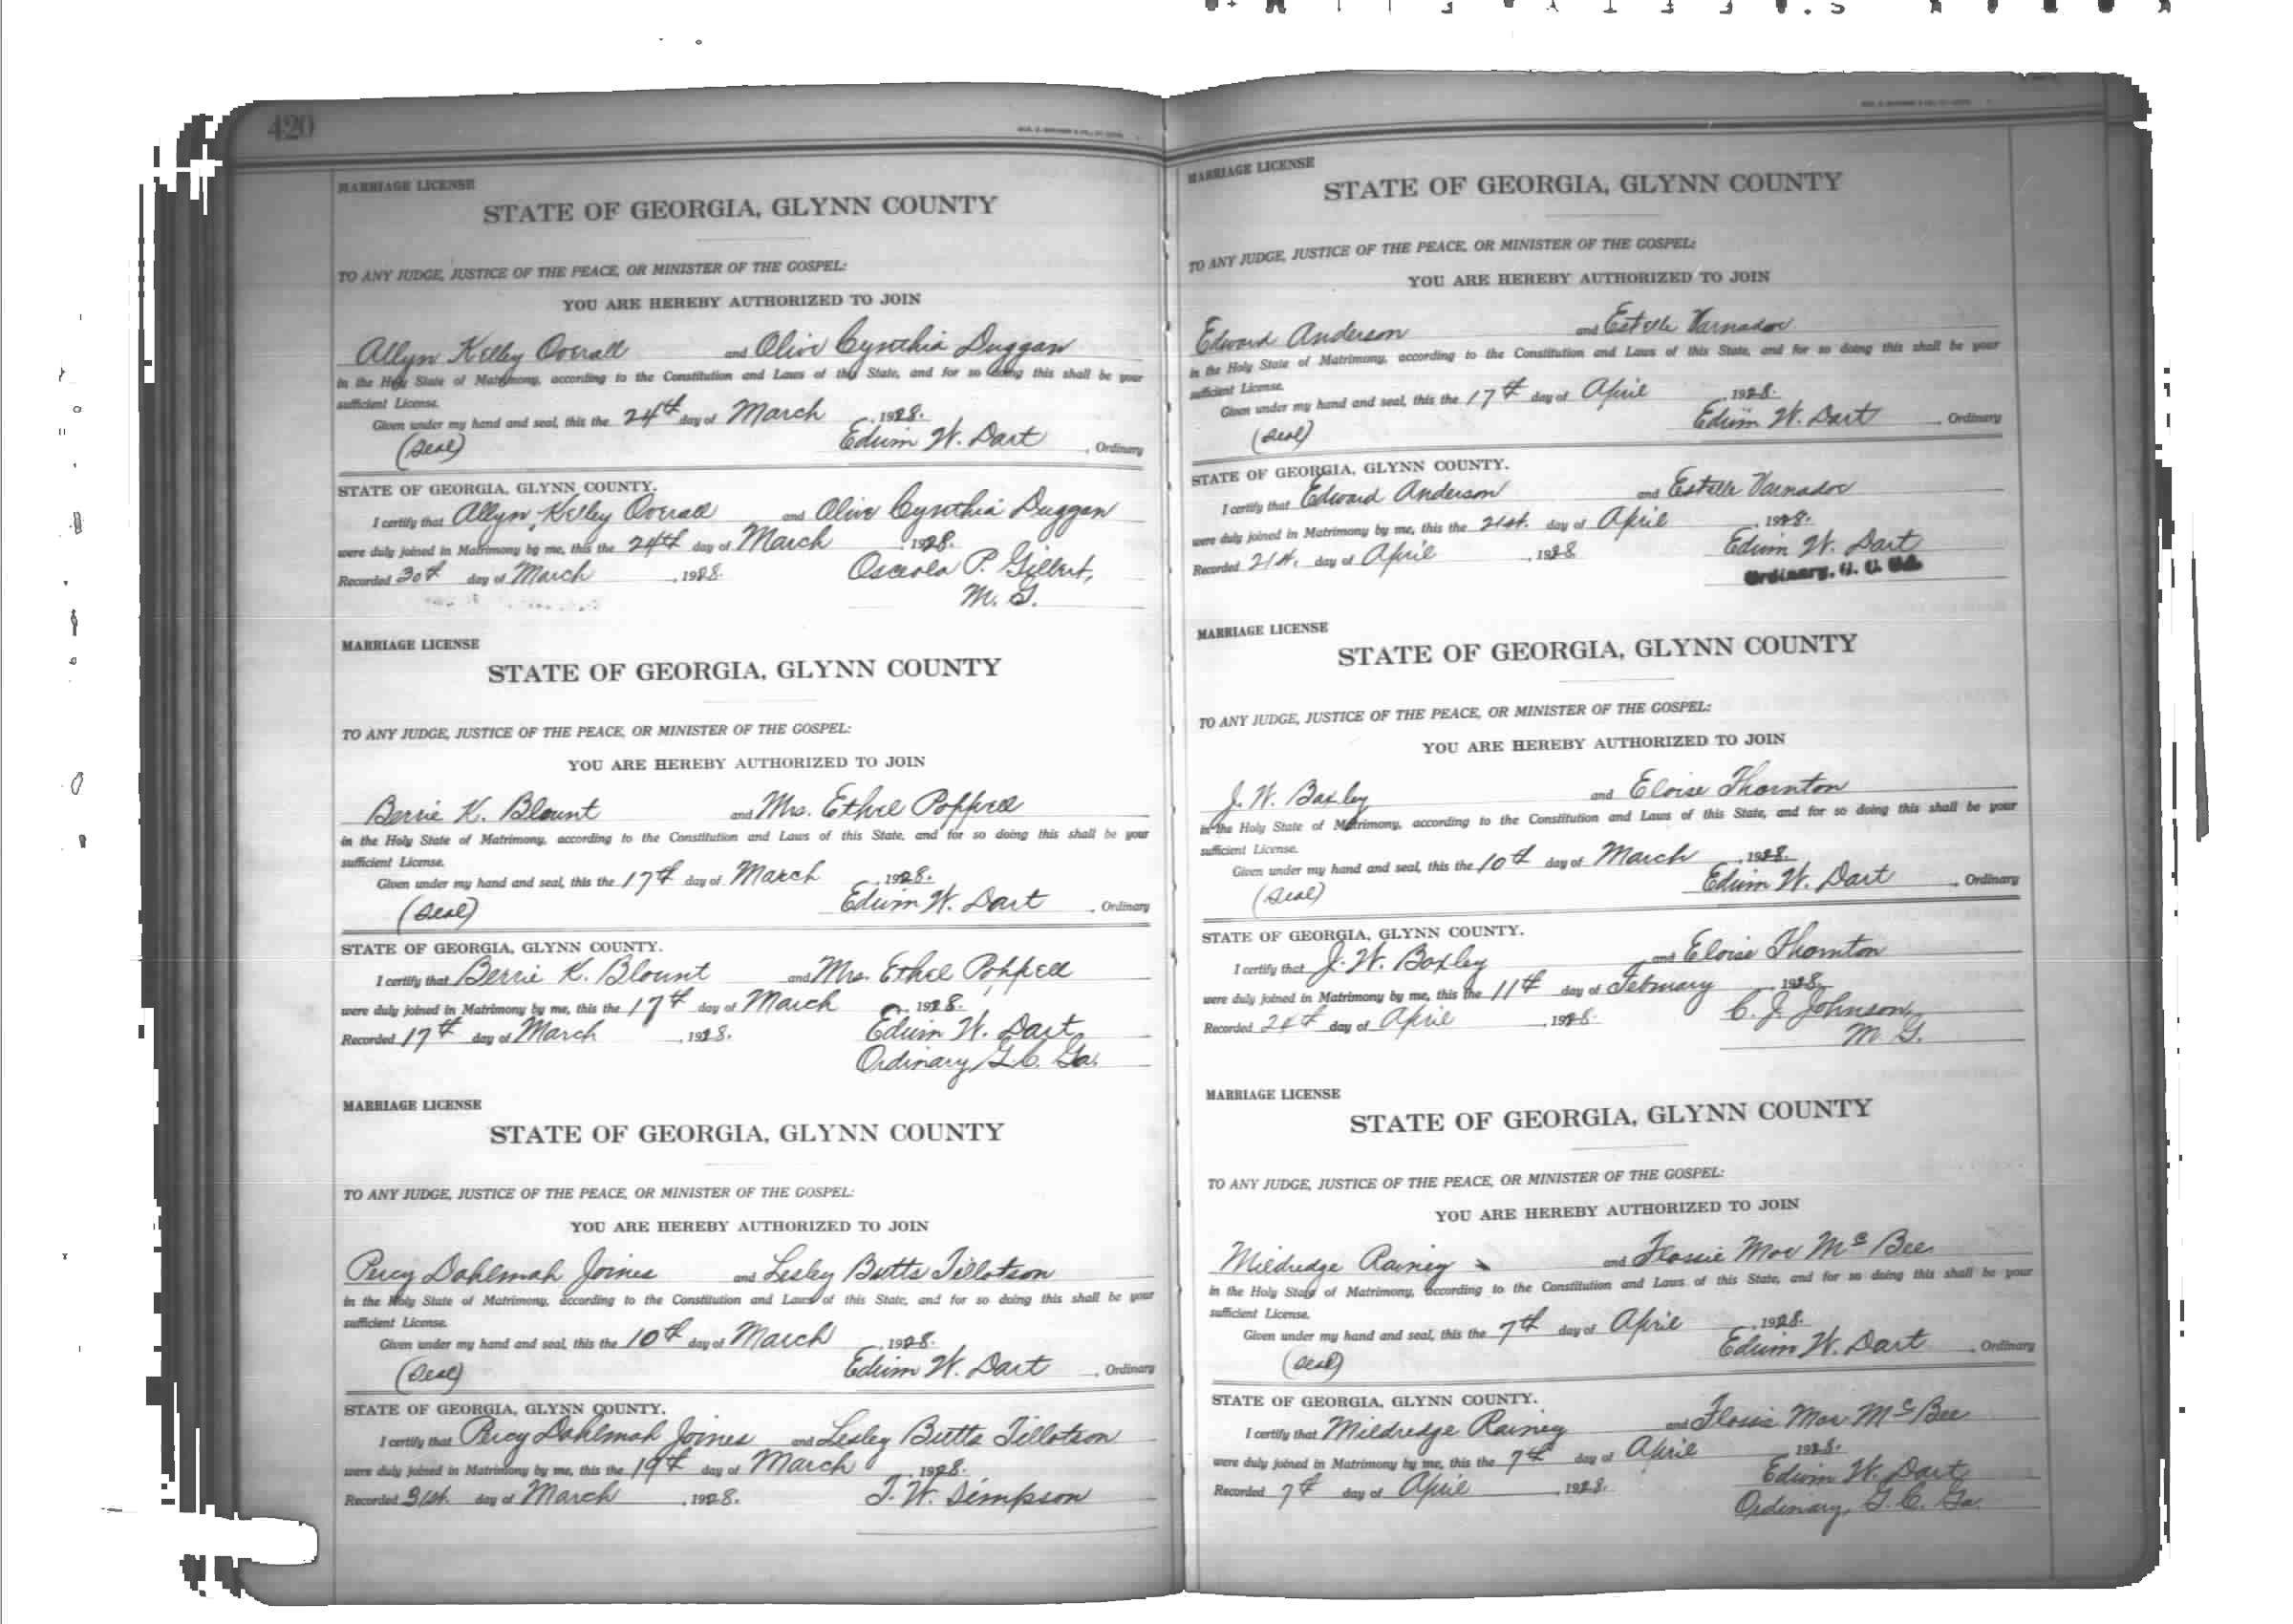 420
MARRIAGE LICENSE
STATE OF GEORGIA, GLYNN COUNTY
TO ANY JUDGE, JUSTICE OF THE PEACE, OR MINISTER OF THE GOSPEL:
YOU ARE HEREBY AUTHORIZED TO JOIN
Allyn Kelley Overall and Olive Cynthia Duggan
in the Holy State of Matrimony, according to the Constitution and Laws of this State, and for so doing this shall be your
sufficient License.
Given under my hand and seal, this the 24th day of March, 1928.
(Seal) Edwin W. Dart, Ordinary
STATE OF GEORGIA, GLYNN COUNTY.
I certify that Allyn Kelley Overall and Olive Cynthia Duggan
were duly joined in Matrimony by me, this the 24th day of March, 1928.
Recorded 30th day of March, 1928. Osceola P. Gilbert,
M. G.
MARRIAGE LICENSE
STATE OF GEORGIA, GLYNN COUNTY
TO ANY JUDGE, JUSTICE OF THE PEACE, OR MINISTER OF THE GOSPEL:
YOU ARE HEREBY AUTHORIZED TO JOIN
Berrie K. Blount and Mrs. Ethel Poppell
in the Holy State of Matrimony, according to the Constitution and Laws of this State, and for so doing this shall be your
sufficient License.
Given under my hand and seal, this the 17th day of March, 1928.
(Seal) Edwin W. Dart, Ordinary
STATE OF GEORGIA, GLYNN COUNTY.
I certify that Berrie K. Blount and Mrs. Ethel Poppell
were duly joined in Matrimony by me, this the 17th day of March, 1928.
Recorded 17th day of March, 1928. Edwin W. Dart,
Ordinary, G. C. Ga.
MARRIAGE LICENSE
STATE OF GEORGIA, GLYNN COUNTY
TO ANY JUDGE, JUSTICE OF THE PEACE, OR MINISTER OF THE GOSPEL:
YOU ARE HEREBY AUTHORIZED TO JOIN
Percy Dahlmah Joines and Lesley Butts Tillotson
in the Holy State of Matrimony, according to the Constitution and Laws of this State, and for so doing this shall be your
sufficient License.
Given under my hand and seal, this the 10th day of March, 1928.
(Seal) Edwin W. Dart, Ordinary
STATE OF GEORGIA, GLYNN COUNTY.
I certify that Percy Dahlmah Joines and Lesley Butts Tillotson
were duly joined in Matrimony by me, this the 19th day of March, 1928.
Recorded 31st. day of March, 1928. T. W. Simpson
MARRIAGE LICENSE
STATE OF GEORGIA, GLYNN COUNTY
TO ANY JUDGE, JUSTICE OF THE PEACE, OR MINISTER OF THE GOSPEL:
YOU ARE HEREBY AUTHORIZED TO JOIN
Edward Anderson and Estelle Varnadoe
in the Holy State of Matrimony, according to the Constitution and Laws of this State, and for so doing this shall be your
sufficient License.
Given under my hand and seal, this the 17th day of April, 1928.
(Seal) Edwin W. Dart, Ordinary
STATE OF GEORGIA, GLYNN COUNTY.
I certify that Edward Anderson and Estelle Varnadoe
were duly joined in Matrimony by me, this the 21st. day of April, 1928.
Recorded 21st. day of April, 1928 Edwin W. Dart
Ordinary, G. C. Ga.
MARRIAGE LICENSE
STATE OF GEORGIA, GLYNN COUNTY
TO ANY JUDGE, JUSTICE OF THE PEACE, OR MINISTER OF THE GOSPEL:
YOU ARE HEREBY AUTHORIZED TO JOIN
J. W. Baxley and Eloise Thornton
in the Holy State of Matrimony, according to the Constitution and Laws of this State, and for so doing this shall be your
sufficient License.
Given under my hand and seal, this the 10th day of March, 1928.
(Seal) Edwin W. Dart, Ordinary
STATE OF GEORGIA, GLYNN COUNTY.
I certify that J. W. Baxley and Eloise Thornton
were duly joined in Matrimony by me, this the 11th day of February, 1928.
Recorded 24th day of April, 1928. C. J. Johnson,
M. G.
MARRIAGE LICENSE
STATE OF GEORGIA, GLYNN COUNTY
TO ANY JUDGE, JUSTICE OF THE PEACE, OR MINISTER OF THE GOSPEL:
YOU ARE HEREBY AUTHORIZED TO JOIN
Mildredge Rainey and Flossie Mae McBee
in the Holy State of Matrimony, according to the Constitution and Laws of this State, and for so doing this shall be your
sufficient License.
Given under my hand and seal, this the 7th day of April, 1928.
(Seal) Edwin W. Dart, Ordinary
STATE OF GEORGIA, GLYNN COUNTY.
I certify that Mildredge Rainey and Flossie Mae McBee
were duly joined in Matrimony by me, this the 7th day of April, 1928.
Recorded 7th day of April, 1928. Edwin W. Dart,
Ordinary, G. C. Ga.